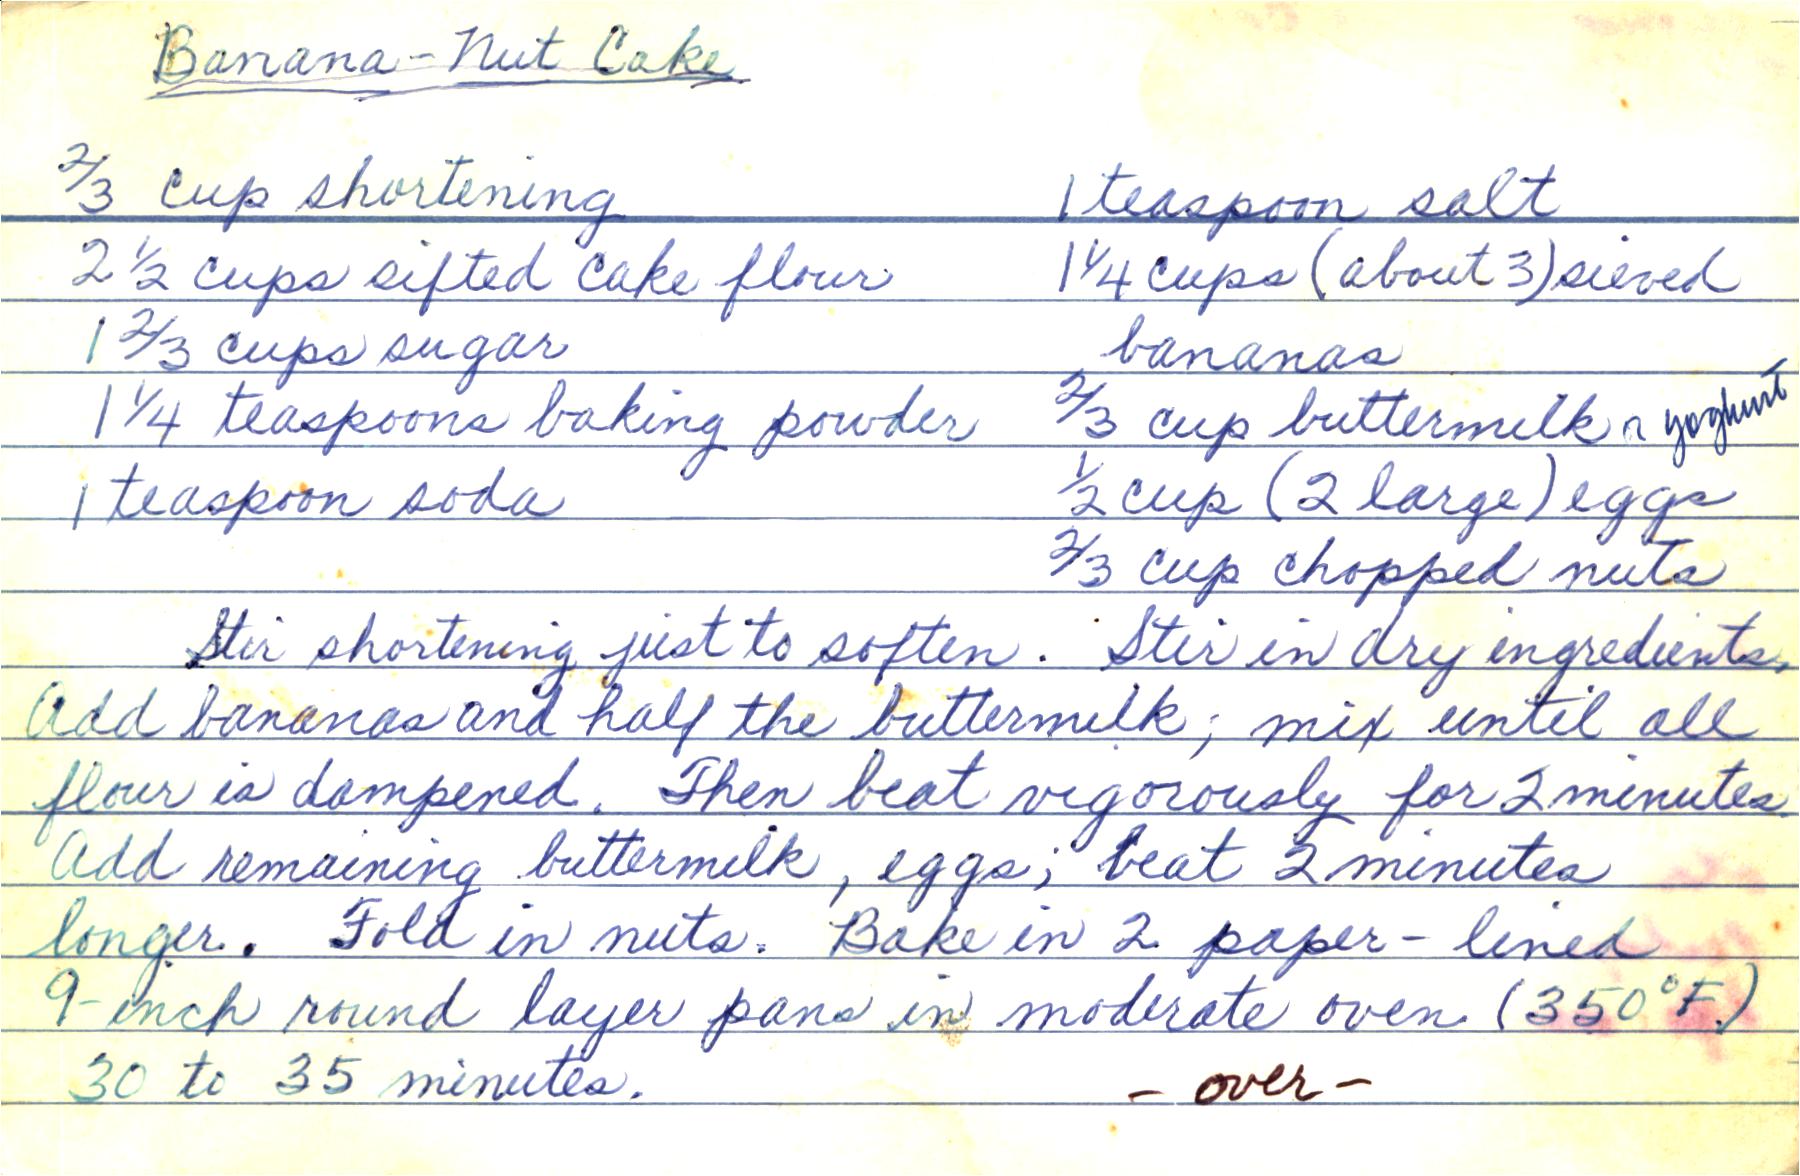 Banana-Nut Cake
2/3 cup shortening
2 1/2 cups sifted cake flour
1 2/3 cups sugar
1 1/4 teaspoons baking powder
1 teaspoon soda
1 teaspoon salt
1 1/4 cups (about 3) sieved
bananas
2/3 cup buttermilk or yoghurt
1/2 cup (2 large) eggs
2/3 cup chopped nuts
Stir shortening just to soften. Stir in dry ingredients.
Add bananas and half the buttermilk; mix until all
flour is dampened. Then beat vigorously for 2 minutes.
Add remaining buttermilk, eggs; beat 2 minutes
longer. Fold in nuts. Bake in 2 paper-lined
9-inch round layer pans in moderate oven (350°F.)
30 to 35 minutes.
- over -